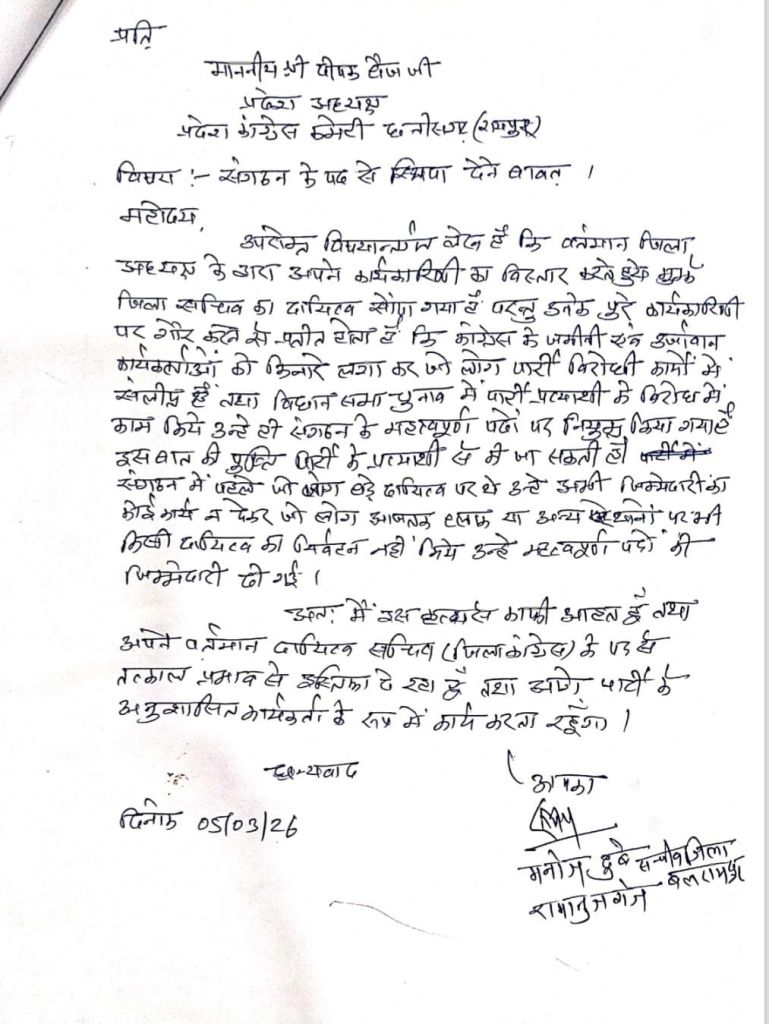 प्रति,
माननीय श्री दीपक बैज जी
प्रदेश अध्यक्ष
प्रदेश कांग्रेस कमेटी छत्तीसगढ़ (रायपुर)
विषय :- संगठन के पद से स्तिफा देने बावत् ।
महोदय,
उपरोक्त विषयान्तर्गत लेख है कि वर्तमान जिला
अध्यक्ष के द्वारा अपने कार्यकारिणी का विस्तार करते हुये मुझे
जिला सचिव का दायित्व सौंपा गया है परन्तु उनके पुरे कार्यकारिणी
पर गौर करने से प्रतीत होता है कि कांग्रेस के जमीनी एवं उर्जावान
कार्यकर्ताओं को किनारे लगा कर जो लोग पार्टी विरोधी कार्यों में
संलीप्त हैं तथा विधान सभा चुनाव में पार्टी प्रत्याशी के विरोध में
काम किये उन्हे ही संगठन के महत्वपूर्ण पदों पर नियुक्त किया गया है
इस बात की पुष्टि पार्टी के प्रत्याशी से की जा सकती है। पार्टी में
संगठन में पहले जो लोग बड़े दायित्व पर थे उन्हे अभी जिम्मेदारी का
कोई कार्य न देकर जो लोग आजतक ब्लाक या अन्य स्थानों पर भी
किसी दायित्व का निर्वहन नहीं किये उन्हे महत्वपूर्ण पदों की
जिम्मेदारी दी गई ।
अतः मैं इस कृत्य से काफी आहत हूँ तथा
अपने वर्तमान दायित्व सचिव (जिला कांग्रेस) के पद से
तत्काल प्रभाव से इस्तिफा दे रहा हूँ तथा आगे पार्टी के
अनुशासित कार्यकर्ता के रूप में कार्य करता रहूँगा ।
धन्यवाद
आपका
दिनांक 05/03/26
मनोज दुबे सचीव जिला
बलरामपुर
रामानुजगंज